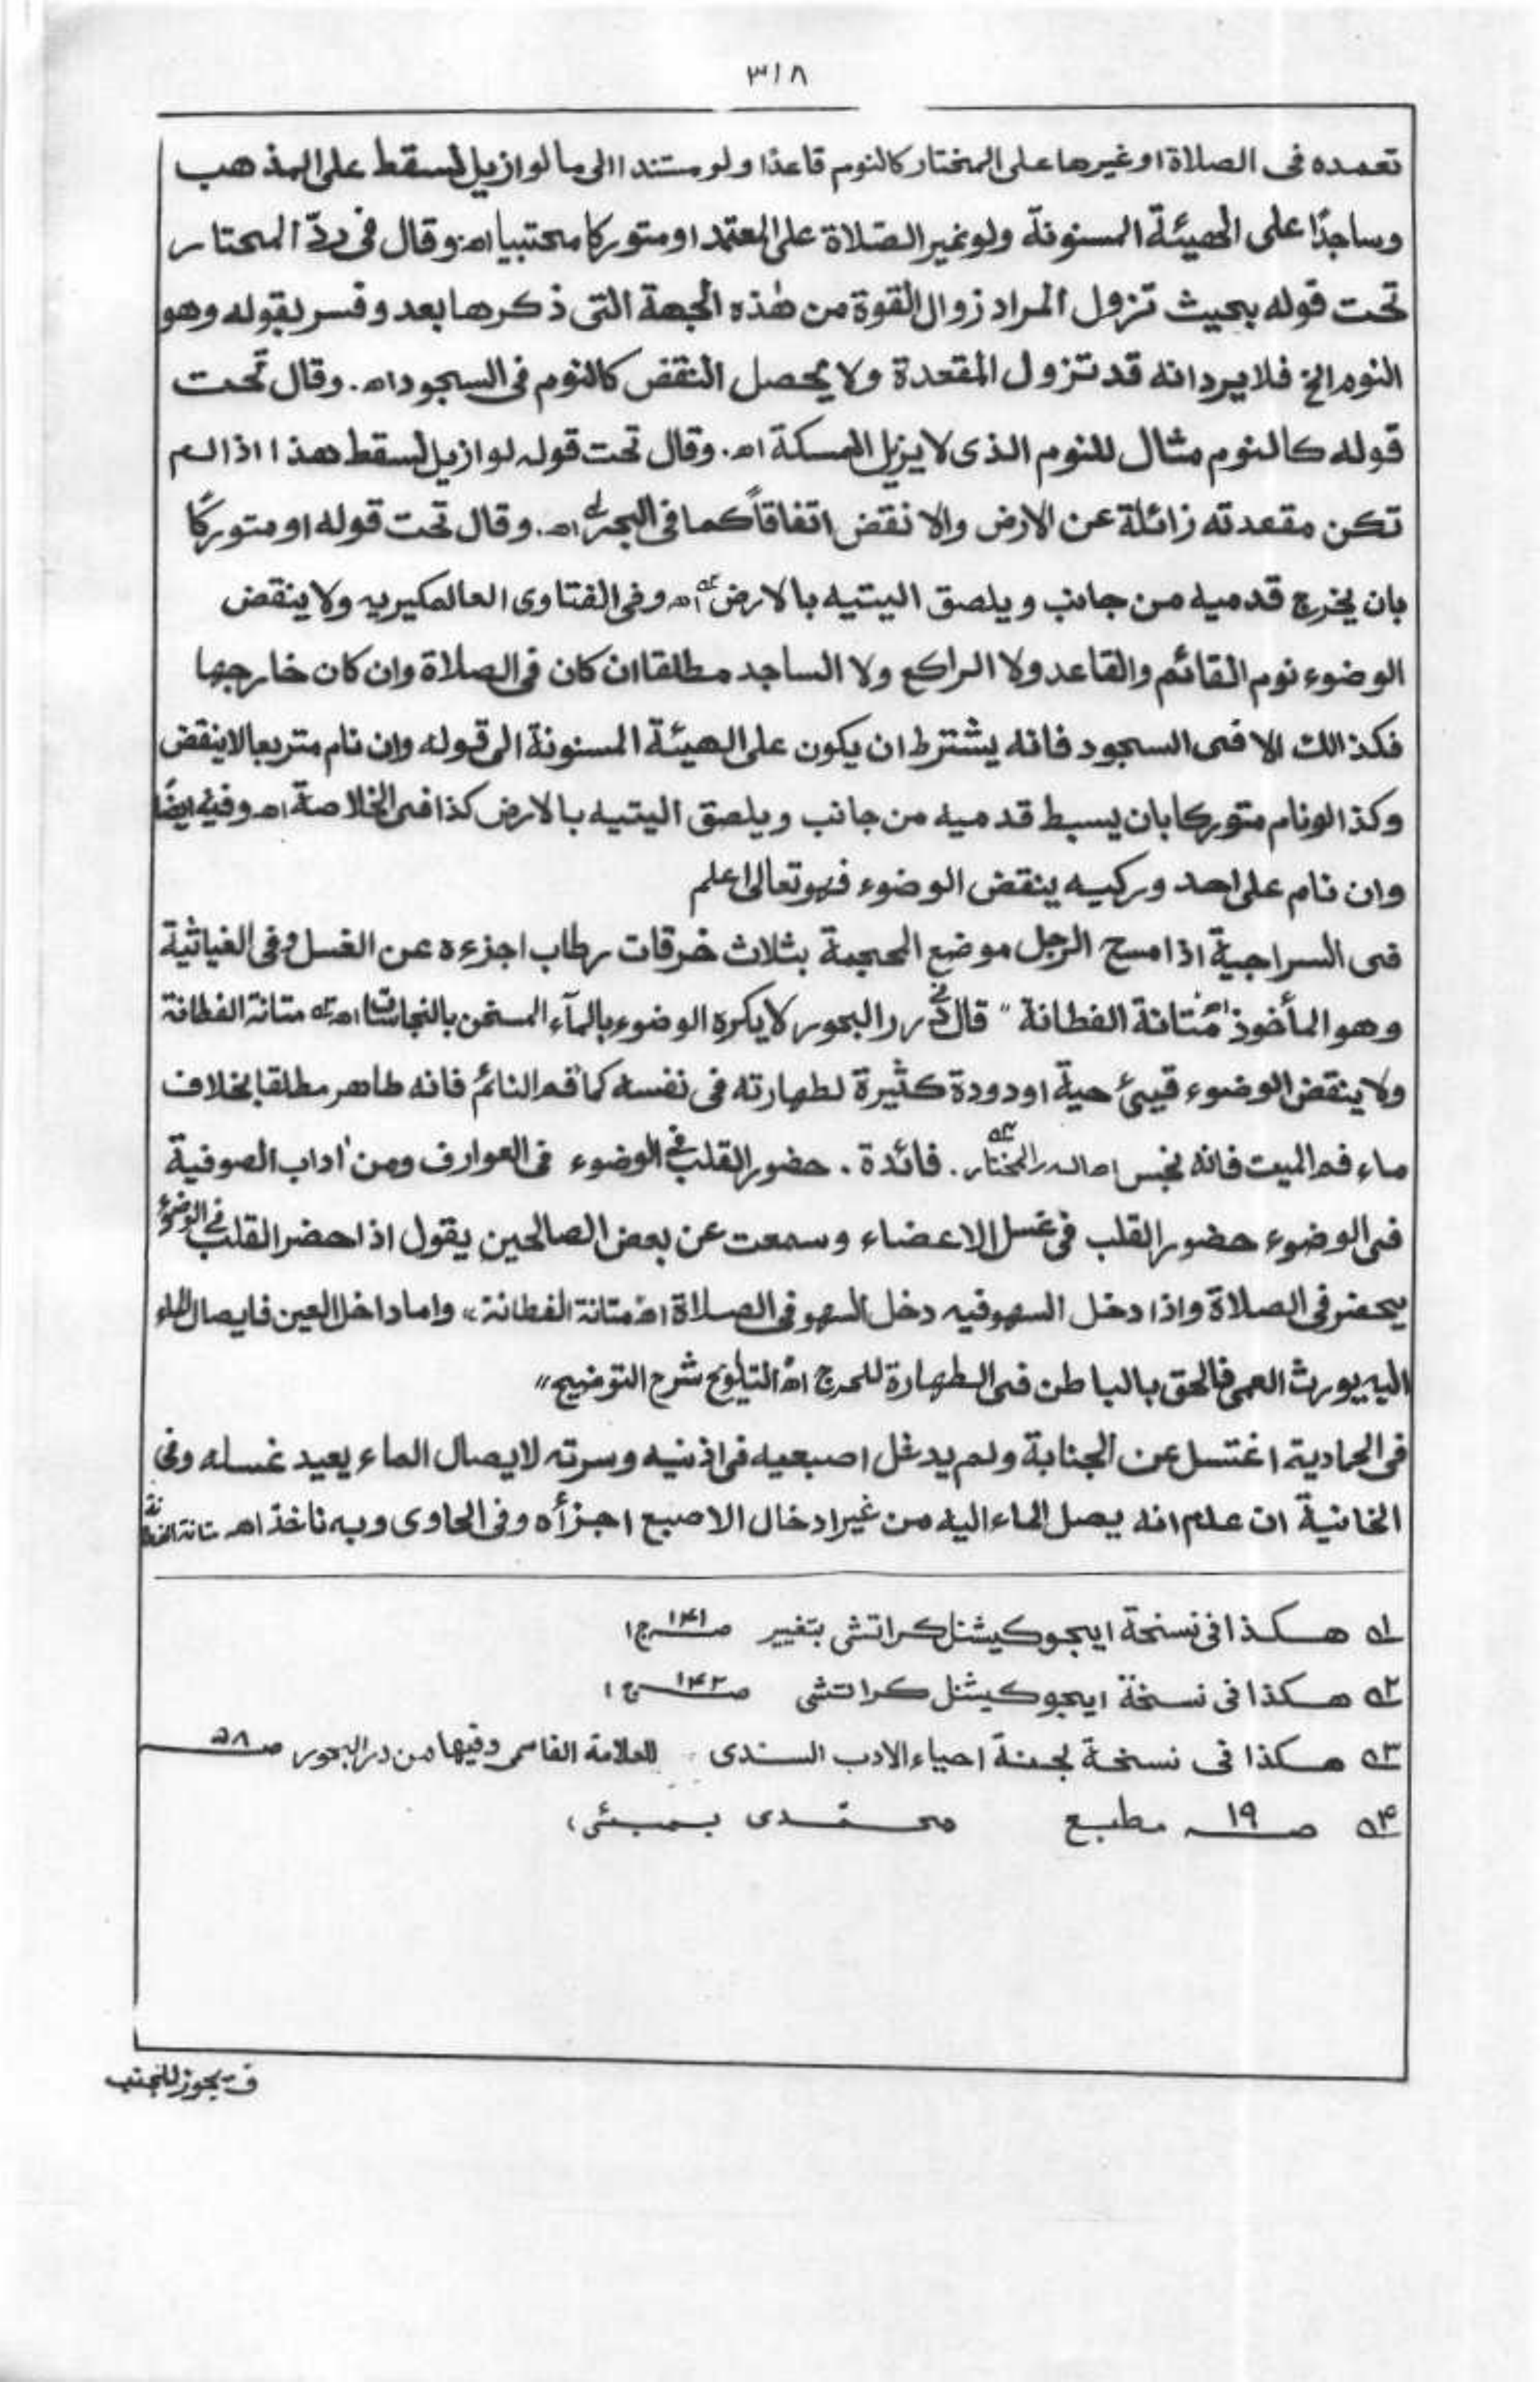 ٣١٨
تعمده فى الصلاة او غيرها على المختار كالنوم قاعدًا ولو مستندا الى ما لو ازيل لسقط على المذهب
وساجدًا على الهيئة المسنونة ولو غير الصلاة على المعتمد او متوركا محتبيا اه وقال فى ردّ المحتار
تحت قوله بحيث تزول المراد زوال القوة من هٰذه الجهة التى ذكرها بعد وفسر بقوله وهو
النوم الخ فلا يرد انه قد تزول المقعدة ولا يحصل النقض كالنوم فى السجود اه. وقال تحت
قوله كالنوم مثال للنوم الذى لا يزيل المسكة اه. وقال تحت قوله لو ازيل لسقط هذا اذا لم
تكن مقعدته زائلة عن الارض والا نقض اتفاقاً كما فى البحر ا؎ اه. وقال تحت قوله او متوركًا
بان يخرج قدميه من جانب ويلصق اليتيه بالارض ٢؎ اه وفى الفتاوى العالمكيريه ولا ينقض
الوضوء نوم القائم والقاعد ولا الراكع ولا الساجد مطلقا ان كان فى الصلاة وان كان خارجها
فكذالك الا فى السجود فانه يشترط ان يكون على الهيئة المسنونة الى قوله وان نام متربعا لا ينقض
وكذا لو نام متوركا بان يسبط قدميه من جانب ويلصق اليتيه بالارض كذا فى الخلاصة اه وفيه ايضًا
وان نام على احد وركيه ينقض الوضوء فهو تعالى اعلم
فى السراجية اذا مسح الرجل موضع المحجمة بثلاث خرقات رطاب اجزءه عن الغسل وفى الغياثية
وهو المأخوذ اه متانة الفطانة " قال فى درر البحور لا يكره الوضوء بالمآء المسخن بالنجاسات اه ٣؎ متانة الفطانة
ولا ينقض الوضوء قيئ حية او دودة كثيرة لطهارته فى نفسه كماء فم النائم فانه طاهر مطلقا بخلاف
ماء فم الميت فانه نجس اه الدر المختار ٤؎. فائدة. حضور القلب فى الوضوء فى العوارف ومن اٰداب الصوفية
فى الوضوء حضور القلب فى غسل الاعضاء وسمعت عن بعض الصالحين يقول اذا حضر القلب فى الوضوء
يحضر فى الصلاة واذا دخل السهو فيه دخل السهو فى الصلاة اه متانة الفطانة ،، واما داخل العين فايصال الماء
اليه يورث العمى فالحق بالباطن فى الطهارة للحرج اه التلويح شرح التوضيح ،،
فى الحمادية اغتسل عن الجنابة ولم يدخل اصبعيه فى اذنيه وسرته لايصال الماء يعيد غسله وفى
الخانية ان علم انه يصل الماء اليه من غير ادخال الاصبع اجزأه وفى الحاوى وبه ناخذ اه متانة الفطانة
١؎ هكذا فى نسخة ايجوكيشنل كراتشى بتغيير صـ١٤١ ج١
٢؎ هكذا فى نسخة ايجوكيشنل كراتشى صـ١٤٢ ج١
٣؎ هكذا فى نسخة لجنة احياء الادب السندى للعلامة القاسمى وفيها من درر البحور صـ٥٨
٤؎ صـ١٩ مطبع محمّدى بمبئى،
ف يجوز للجنب